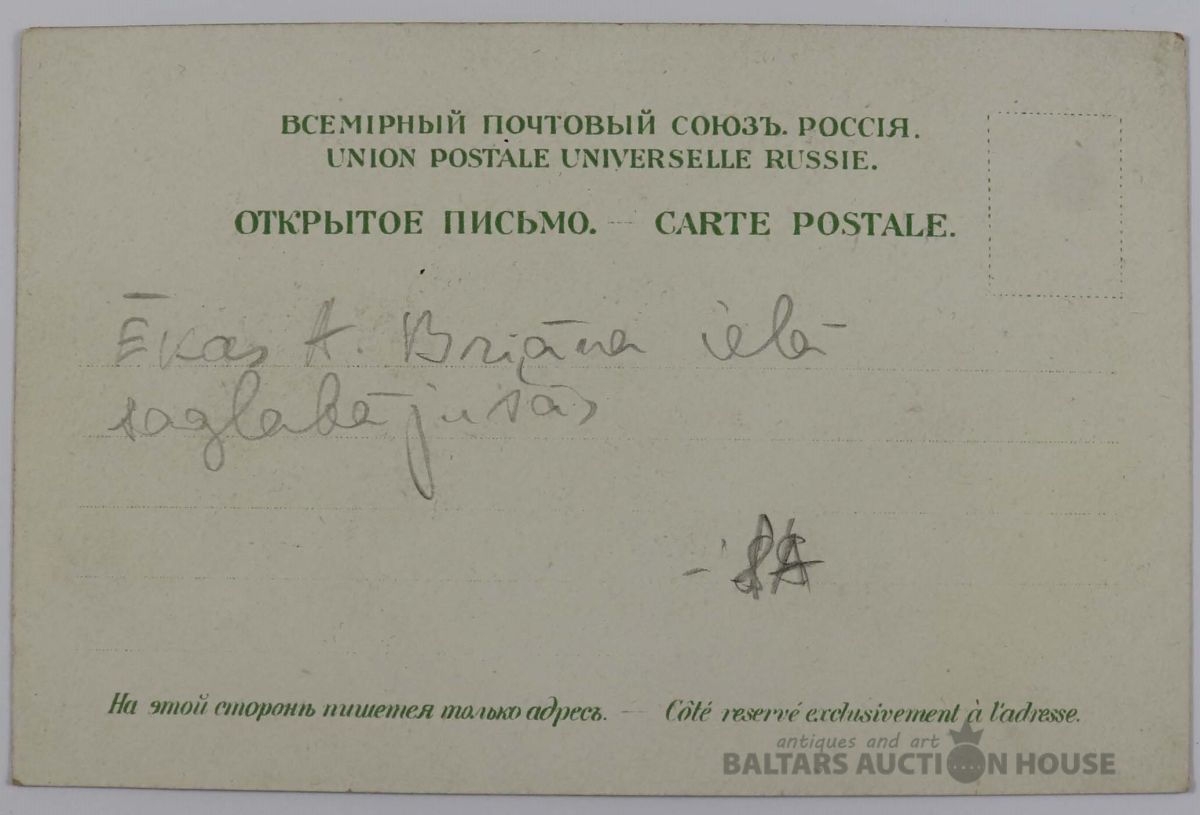 ВСЕМІРНЫЙ ПОЧТОВЫЙ СОЮЗЪ. РОССІЯ.
UNION POSTALE UNIVERSELLE RUSSIE.
ОТКРЫТОЕ ПИСЬМО. — CARTE POSTALE.
Ēkas A. Briāna ielā
saglabājušās
На этой сторонѣ пишется только адресъ. — Côté reservé exclusivement à l'adresse.
antiques and art
BALTARS AUCTION HOUSE